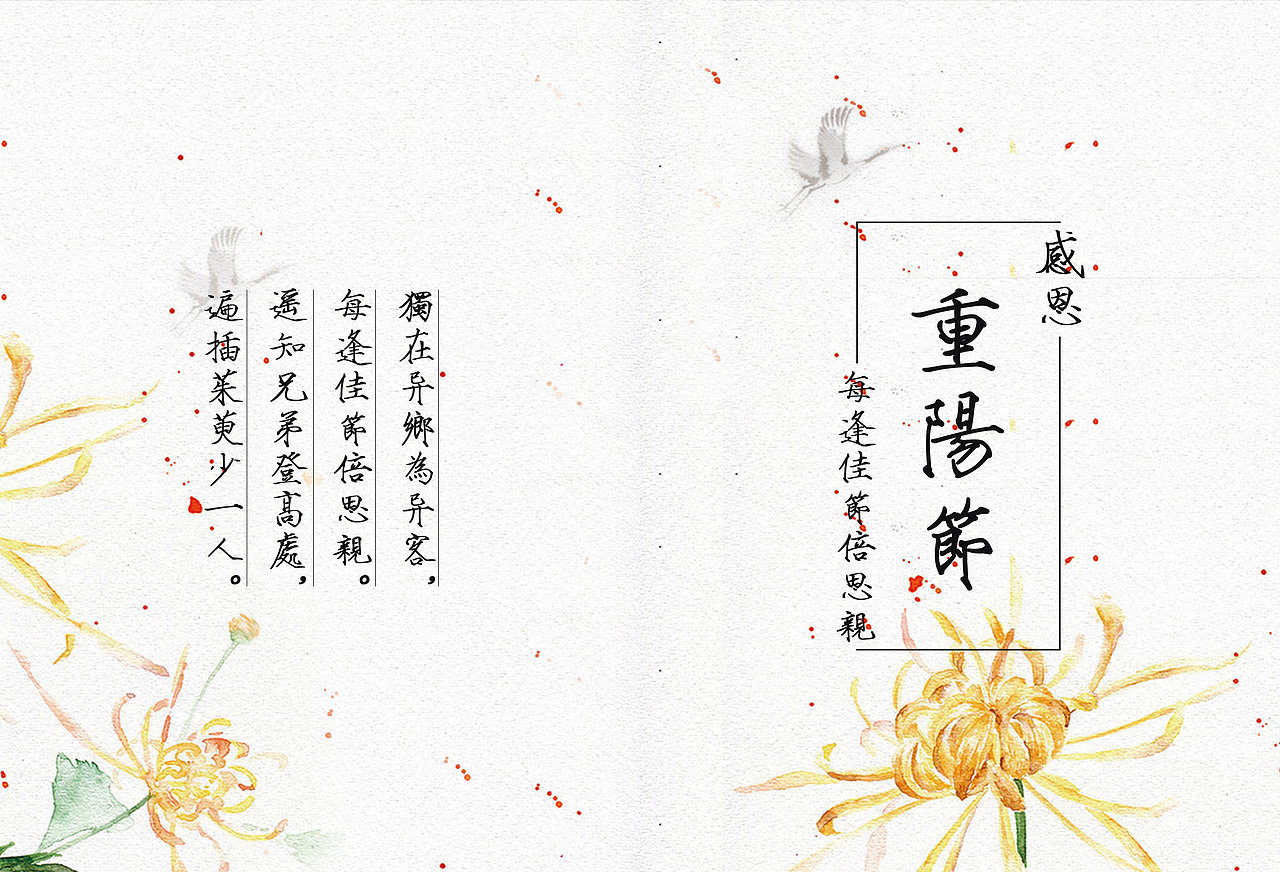 獨在异鄉為异客，
每逢佳節倍思親。
遥知兄弟登高處，
遍插茱萸少一人。
感恩
重陽節
每逢佳節倍思親